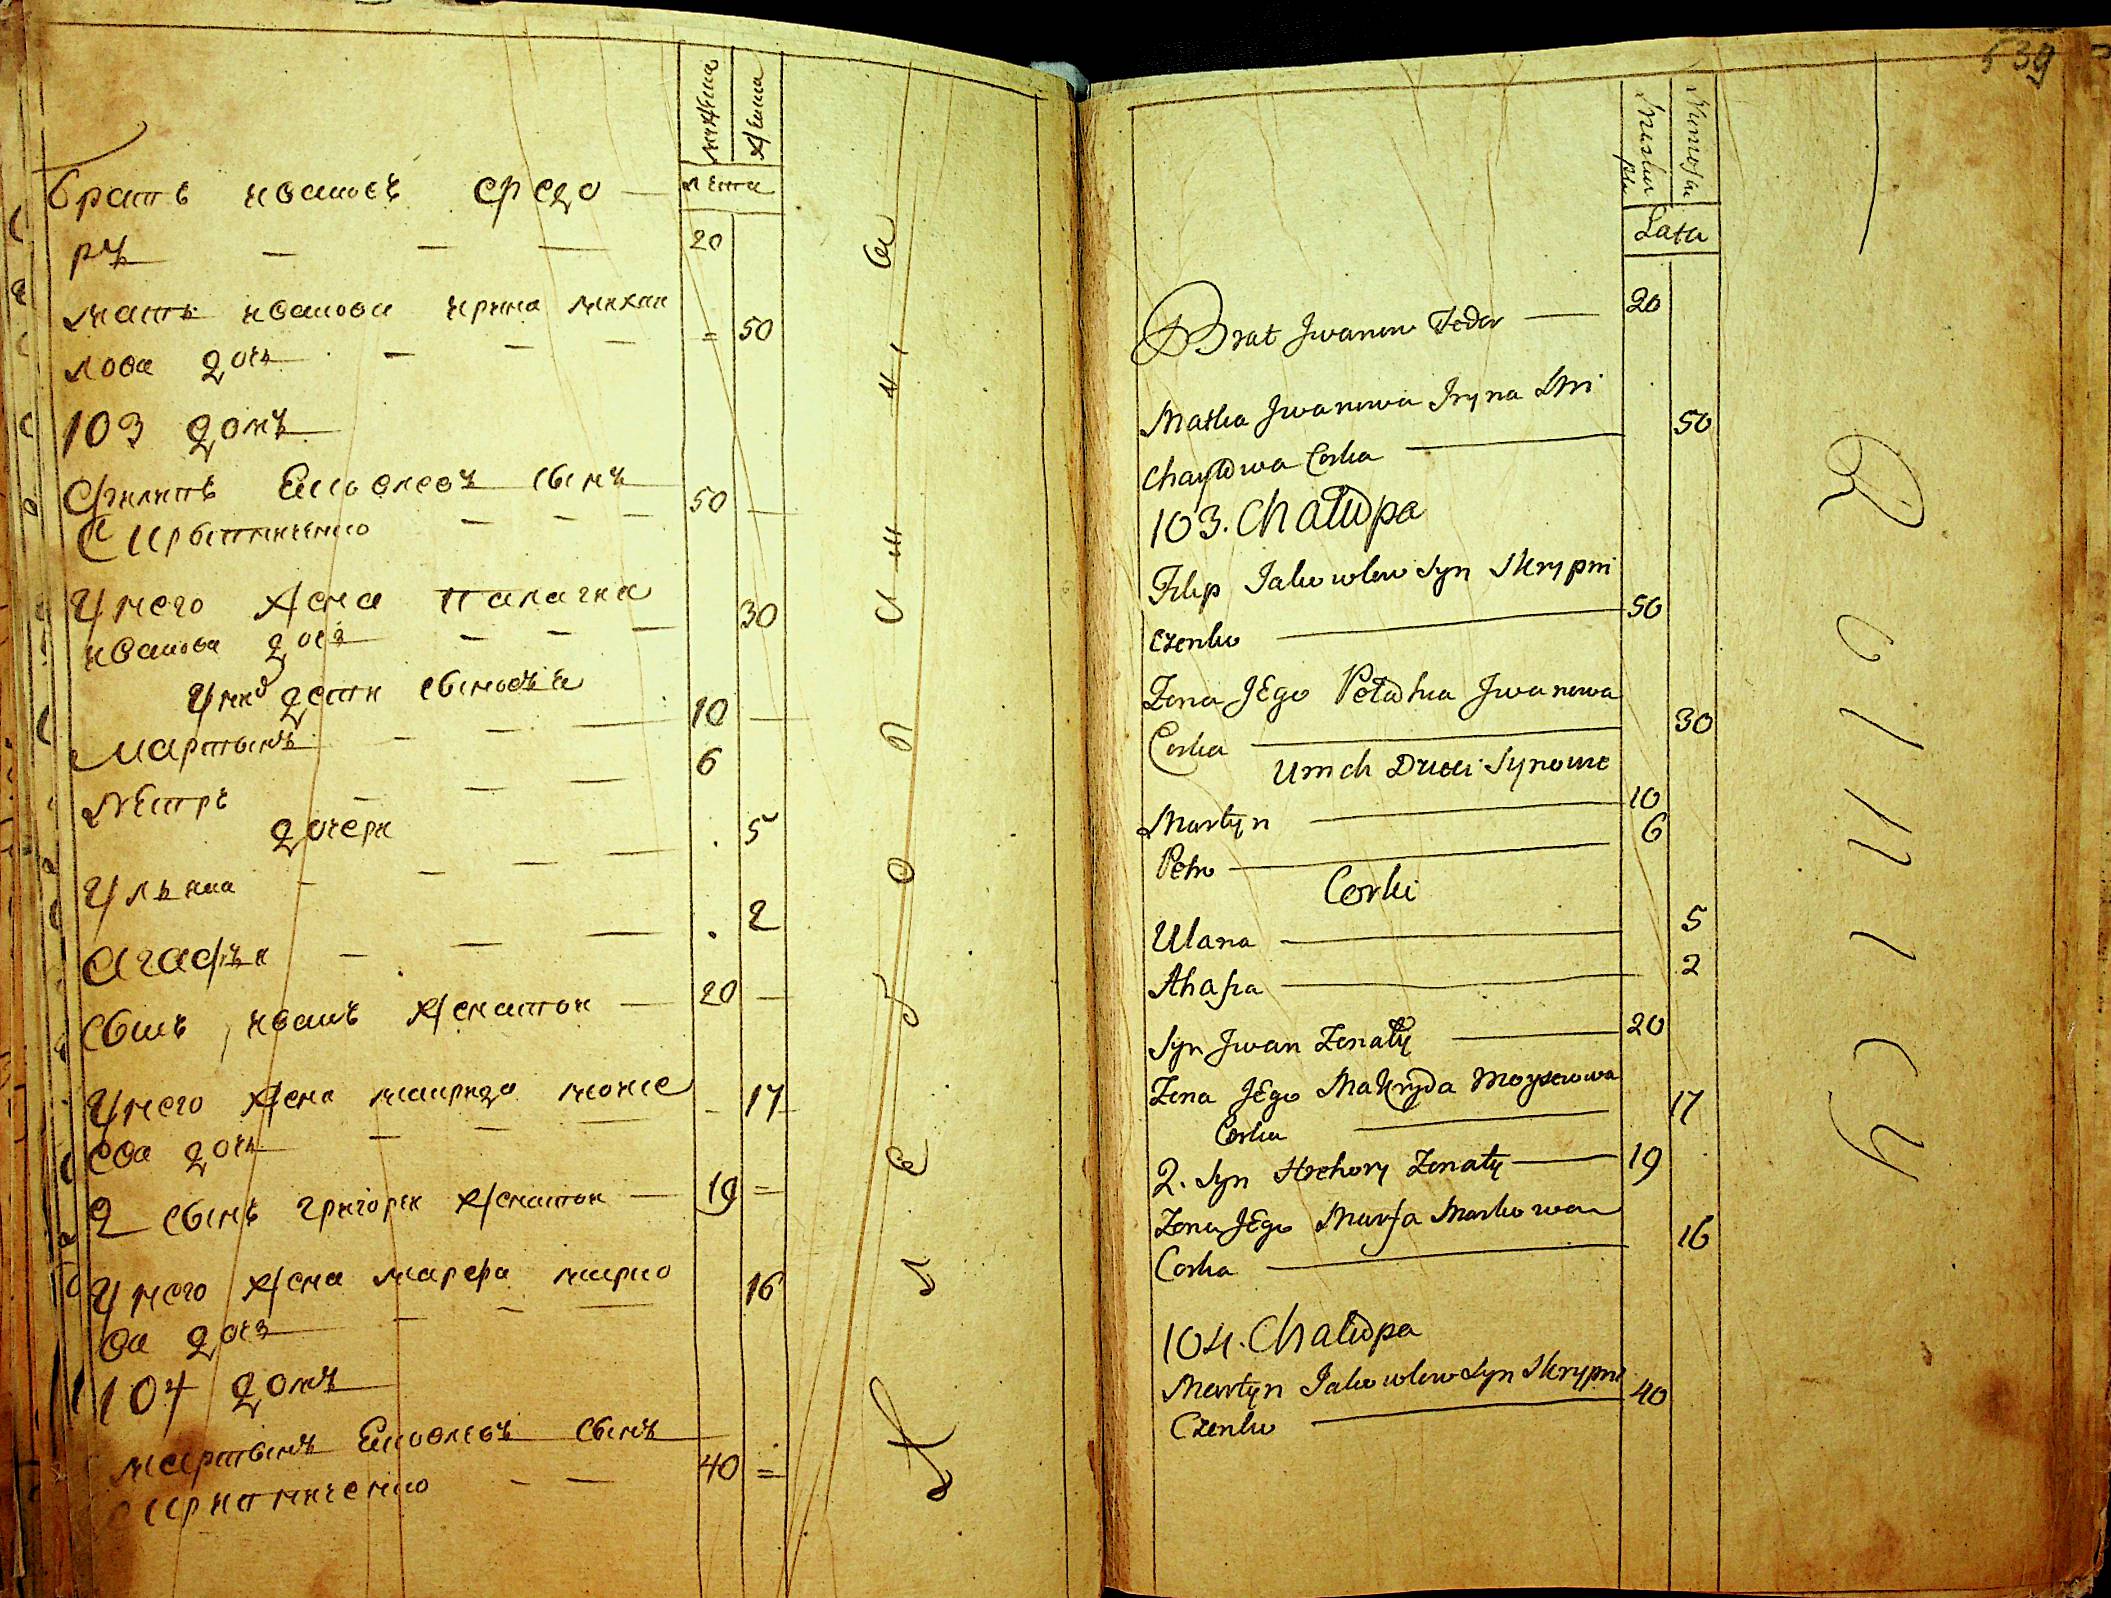 мужеска
женска
лѣта
братъ ивановъ Федо
ръ 20
мать иванова ирина михаи
лова дочь 50
103 домъ
Филипъ Яковлевъ сынъ
Скрыпниченко 50
У него жена палагея
иванова дочь 30
У них дети сыновья
мартынъ 10
петръ 6
дочери
Ульяна 5
Агафья 2
сынъ иванъ женатой 20
У него жена маврида моисе
ева дочь 17
2 сынъ григореи женатои 19
У него жена марфа марко
ва дочь 16
104 домъ
мартынъ Яковлевъ сынъ
Скрипниченко 40
539
Lata
Brat Jwanow Fedor 20
Matka Jwanowa Iryna Mi
chayłowa Corka 50
103. Chałupa
Filip Jakowlew Syn Skrypni
czenko 50
Żona JEgo Pełahia Jwanowa
Corka 30
U nich Dzieci Synowie
Martyn 10
Petro 6
Corki
Ulana 5
Ahafia 2
Syn Jwan Żonaty 20
Żona JEgo Makryda Moysieiowa
Corka 17
2. Syn Hrehory Żonaty 19
Żona JEgo Marfa Markowa
Corka 16
104. Chałupa
Martyn Jakowlew Syn Skrypni
Czenko 40